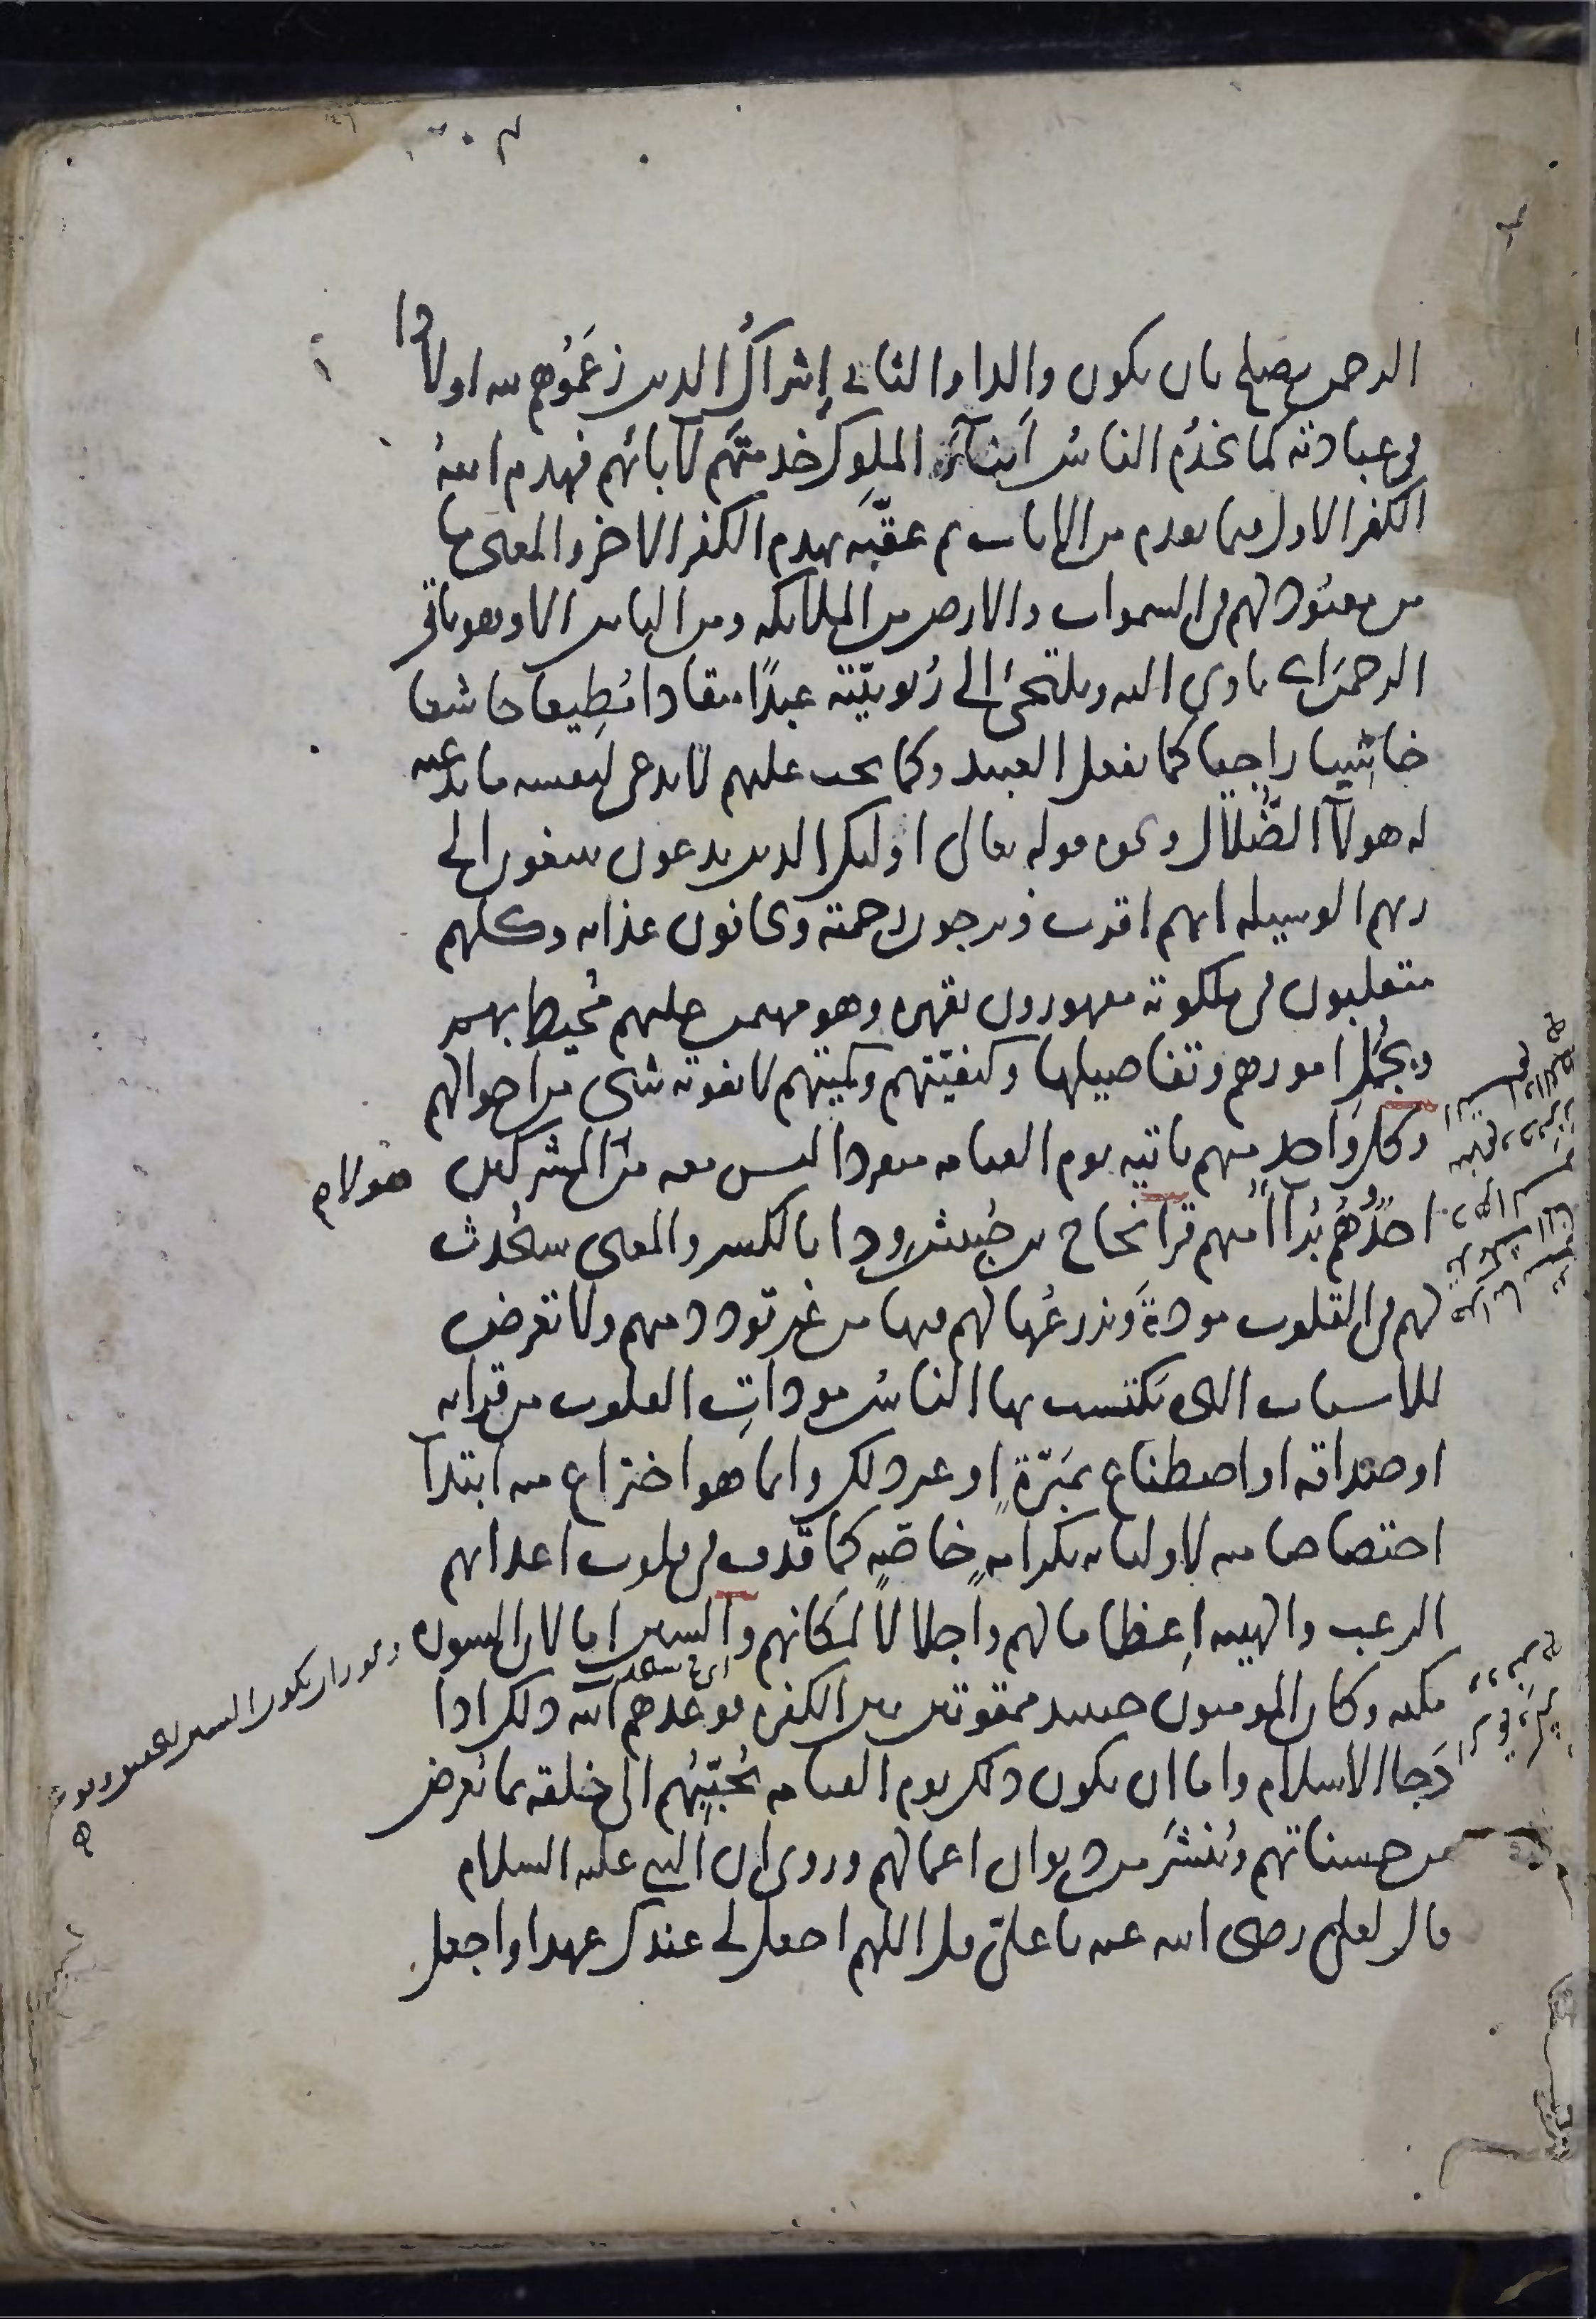 الرحمن يصلح بان يكون والدا والثاني إشراك الدين زعموهم لله اولادا
في عبادته كما يخدم الناس أبناء الملوك خدمتهم لآبائهم فهدم الله
الكفر الاول فيما تقدم من الايات ثم عقّبه بهدم الكفر الاخر والمعنى ما
من معبود لهم في السموات والارض من الملائكه ومن الناس الا وهو ياتي
الرحمن اي ياوي اليه ويلتجئ الى ربوبيّته عبدًا منقادا مُطِيعا خاشعا
خاشيا راجيا كما يفعل العبيد وكما يجب عليهم لا يدعى لنفسه ما يدعيه
له هولآ الضُّلال ونحوه قوله تعالى اولئك الذين يدعون يبتغون الى
ربهم الوسيله ايهم اقرب ويرجون رحمته ويخافون عذابه وكلهم
متقلبون في ملكوته مقهورون بقهره وهو مهيمن عليهم مُحيط بهم
وبجُمل امورهم وتفاصيلها وكيفيّتهم وكميتهم لا يفوته شى من احوالهم
وكل واحد منهم ياتيه يوم القيامه منفردا ليس معه من المشركين هولاء
احدٌ وهُم بُرآءُ منهم قرا نجاح بن حبيش وِدا بالكسر والمعنى سيُحدث
لهم في القلوب مودةً ويزرعُها لهم فيها من غير تودد منهم ولا تعرض
للاسباب التى تكتسب بها الناسُ مودات القلوب من قرابه
او صداقه او اصطناع بمَبَرّةٍ او غير ذلك وانما هو اختراع منه ابتدآ
اختصاصا منه لاوليائه بكرامةٍ خاصّةٍ كما قذف في قلوب اعدائهم
الرعب والهيبه إعظاما لهم واجلالا لمكانهم والسين اما لان السوره
مكيه وكان المومنون حينئذ ممقوتين بين الكفره فوعدهم الله ذلك اذا
دَجا الاسلام واما ان يكون ذلك يوم القيامه يُحبّبُهُم الى خلقه بما يُعرض
من حسناتهم ويُنشَر من ديوان اعمالهم وروى ان النبي عليه السلام
قال لعلي رضى الله عنه يا علىّ قل اللهم اجعل لى عندك عهدا واجعل